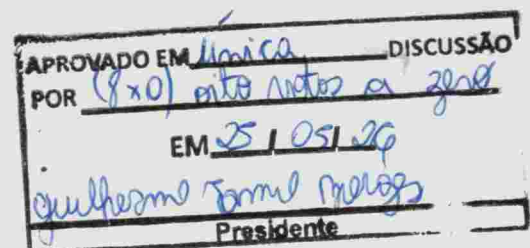 APROVADO EM única DISCUSSÃO
POR (8x0) oito votos a zero
EM 25 / 05 / 26
Guilherme
Presidente